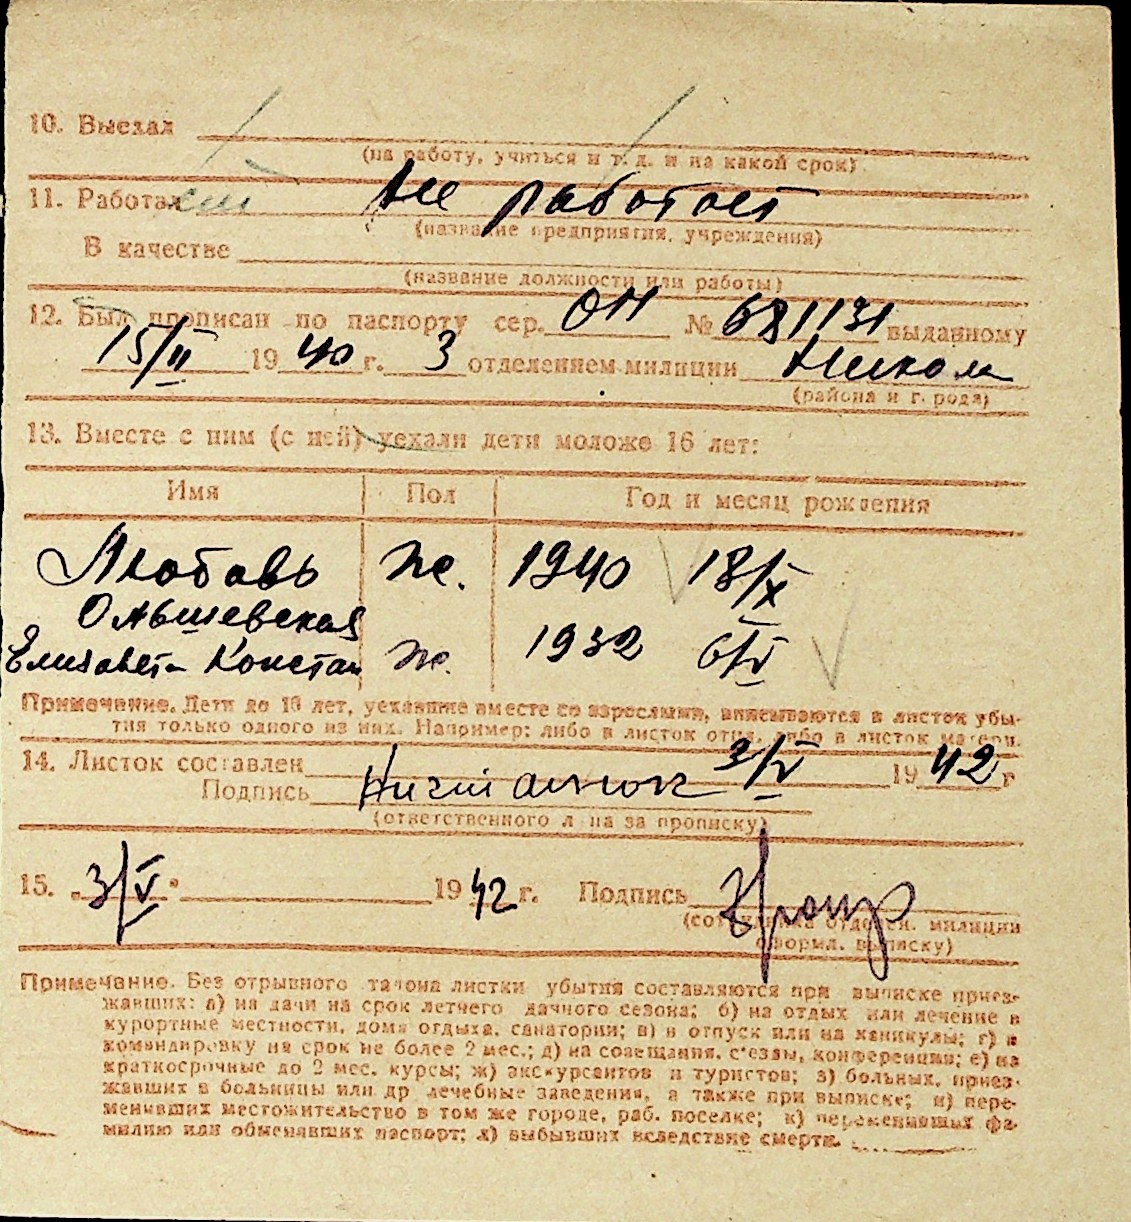 10. Выехал
(на работу, учиться и т. д. и на какой срок)
11. Работал Не работает
(название предприятия, учреждения)
В качестве
(название должности или работы)
12. Был прописан по паспорту сер. ОН № 681131 выданному
15/II 1940 г. 3 отделением милиции Никол
(района и города)
13. Вместе с ним (с ней) уехали дети моложе 16 лет:
Имя Пол Год и месяц рождения
Любовь ж. 1940 18/X
Ольшевская
Елизавета Констан ж. 1932 6/V
Примечание. Дети до 16 лет, уехавшие вместе со взрослыми, вписываются в листок убы-
тия только одного из них. Например: либо в листок отца, либо в листок матери.
14. Листок составлен 3/V 1942 г
Подпись
(ответственного лица за прописку)
15. „3/V“ 1942 г. Подпись
(сотрудника отделен. милиции
оформл. выписку)
Примечание. Без отрывного талона листки убытия составляются при выписке приез-
жавших: а) на дачи на срок летнего дачного сезона; б) на отдых или лечение в
курортные местности, дома отдыха, санатории; в) в отпуск или на каникулы; г) в
командировку на срок не более 2 мес.; д) на совещания, с'езды, конференции; е) на
краткосрочные до 2 мес. курсы; ж) экскурсантов и туристов; з) больных, приез-
жавших в больницы или др лечебные заведения, а также при выписке; и) пере-
менивших местожительство в том же городе, раб. поселке; к) переменивших фа-
милию или обменявших паспорт; л) выбывших вследствие смерти.